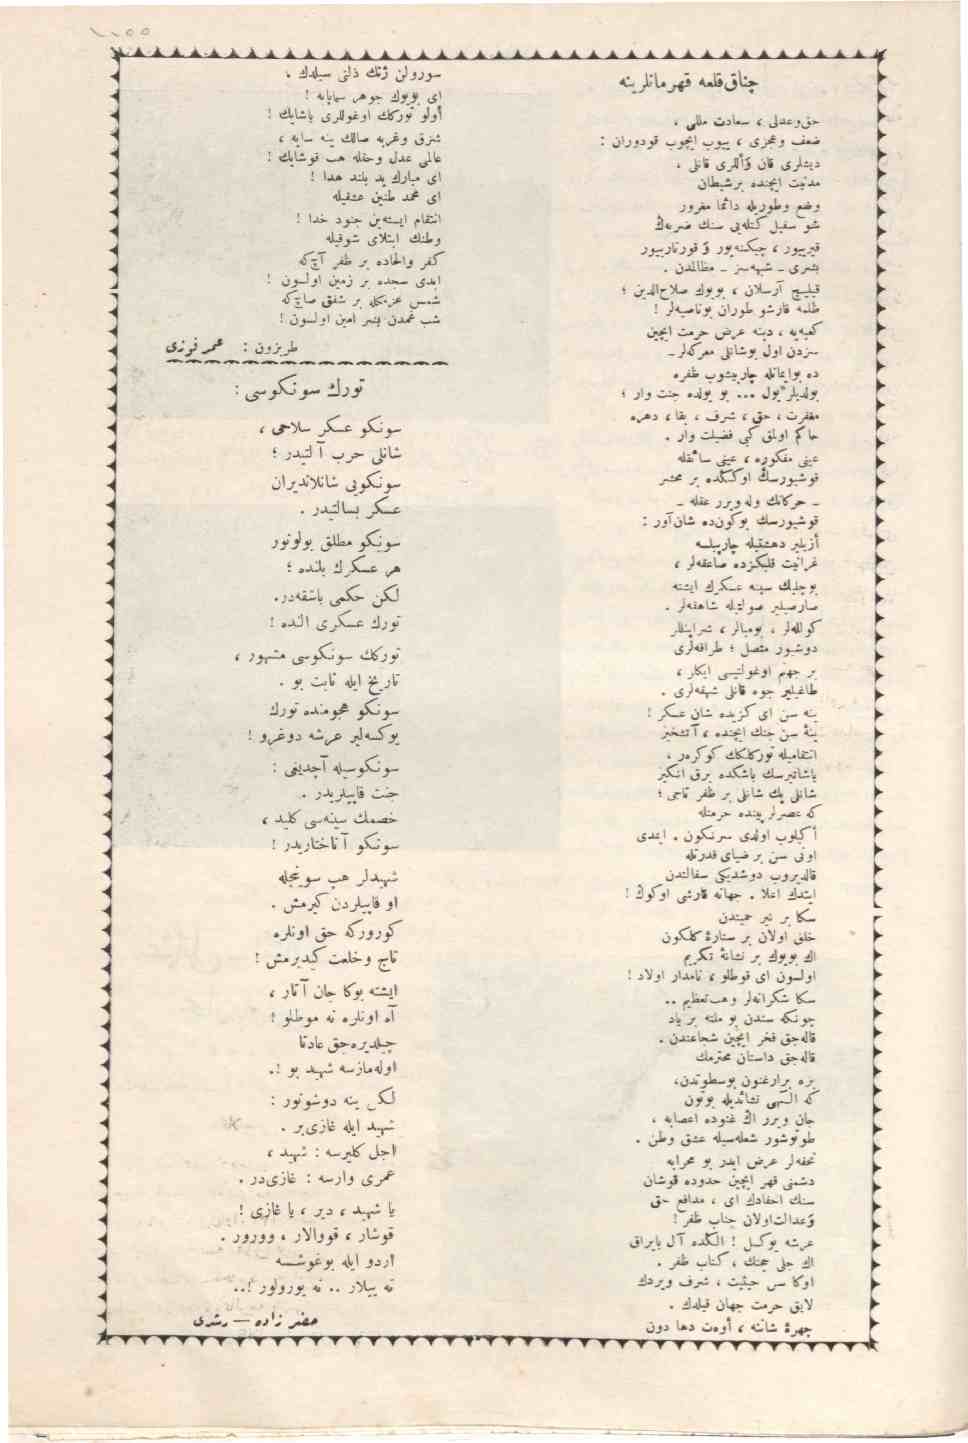 چناق‌قلعه قهرمانلرینه
حق‌وعدلی ، سعادت مللی ،
ضعف وعجزی ، ییوب ایچوب قودوران :
دیشلری قان وأللری قانلی ،
مدنیت ایچنده برشیطان
وضع وطوریله دائما مغرور
شو سفیل کتله‌یی سنك ضربه‌ڭ
قیرییور ، چیکنه‌یور و قورتارییور
بشری ـ شبهه‌سز ـ مظالمدن .
قیلیچ آرسلان ، بویوك صلاح‌الدین ؛
ظلمه قارشو طوران بوناصیه‌لر !
کعبه‌یه ، دینه عرض حرمت ایچین
سزدن اول بوشانلی معرکه‌لر‌ـ
ده بوایمانله چارپیشوب ظفره
بولدیلر یول ... بو یولده جنت وار ؛
مغفرت ، حق ، شرف ، بقا ، دهره
حاکم اولمق کبی فضیلت وار .
عینی مفکوره ، عینی سائقله
قوشیورسڭ اوکڭده بر محشر
ـ حرکاتك وله ویرر عقله ـ
قوشیورسك بوکون‌ده شان‌آور :
أزیلیر دهشتیله چارپیلسه
غرانیت قلبکزده صاعقه‌لر ،
بوچلیك سینه عسکرك ایشته
صارصیلیر صولتیله شاهقه‌لر .
کولله‌لر ، بومبالر ، شراپنللر
دوشیور متصل ؛ طراقه‌لری
بر جهنم اوغولتیسی ایکلر ،
طاغیلیر جوه قانلی شهقه‌لری .
ینه سن ای کزیده شان عسکر !
ینه سن جنك ایچنده ، آتشخیز
انتقامیله تورکلکك کوکره‌ر ،
یاشاتیرسك باشکده برق انکیز
شانلی پك شانلی بر ظفر تاجی ؛
که عصرلر پیننده حرمتله
أکیلوب اولدی سرنکون . ایمدی
اونی سن بر ضیای قدرتله
قالدیروب دوشدیکی سفالتدن
ایتدك اعلا . جهانه قارشی اوکون !
سکا بر نیر حمیتدن
خلق اولان بر ستارۀ کلکون
اك بویوك بر نشانۀ تکریم
اولسون ای قوطلو ، نامدار اولاد !
سکا شکرانه‌لر وهب‌تعظیم ..
چونکه سندن بو ملته بر یاد
قاله‌جق فخر ایچین شجاعتدن .
قاله‌جق داستان محترمك
بزه برارغنون بوسطوتدن،
که الـهی نشائدیله بوتون
جان ویرر اك غنوده اعصابه ،
طوتوشور شعله‌سیله عشق وطن .
تحفه‌لر عرض ایدر بو محرابه
دشمنی قهر ایچین حدوده قوشان
سنك احفادك ای ، مدافع حق
وعدالت‌اولان جناب ظفر !
عرشه یوکسل ! الکده آل بایراق
اك جلی حجتك ، کتاب ظفر .
اوکا سن حیثیت ، شرف ویردك
لایق حرمت جهان قیلدك .
چهرۀ شانته ، أوه‌ت دها دون
سورولن ژنك ذلتی سیلدك ،
ای بویوك جوهر سیاپایه !
أولو تورکك اوغوللری یاشایك !
شرق وغربه صالك ینه سایه ،
عالمی عدل وحقله هب قوشایك !
ای مبارك ید بلند هدا !
ای محمد طنین عشقیله
انتقام ایسته‌ین جنود خدا !
وطنك ابتلای شوقیله
کفر والحاده بر ظفر آچ‌که
ابدی سجده بر زمین اولسون !
شمس عزمکله بر شفق صاچ‌که
شب غمدن بشر امین اولسون !
طربزون : عمر فوزی
تورك سونکوسی :
سونکو عسکر سلاحی ،
شانلی حرب آلتیدر ؛
سونکویی شانلاندیران
عسکر بسالتیدر .
سونکو مطلق بولونور
هر عسکرك بلنده ؛
لکن حکمی باشقه‌در.
تورك عسکری النده !
تورکك سونکوسی مشهور ،
تاریخ ایله ثابت بو .
سونکو هجومنده تورك
یوکسه‌لیر عرشه دوغرو !
سونکوسیله آچدیغی :
جنت قاپیلریدر .
خصمك سینه‌سی کلید ،
سونکو آناختاریدر !
شهیدلر هپ سوینجله
او قاپیلردن کیرمش .
کورورکه حق اونلره
تاج وخلعت کیدیرمش !
ایشته بوکا جان آتار ،
آه اونلره نه موطلو !
چیلدیره‌جق عادتا
اوله‌مازسه شهید بو !.
لکن ینه دوشونور :
شهید ایله غازی‌بر .
اجل کلیرسه : شهید ،
عمری وارسه : غازی‌در .
یا شهید ، دیر ، یا غازی !
قوشار ، قووالار ، وورور .
اردو ایله بوغوشسه
نه ییلار .. نه یورولور !..
خضر زاده — رشدی